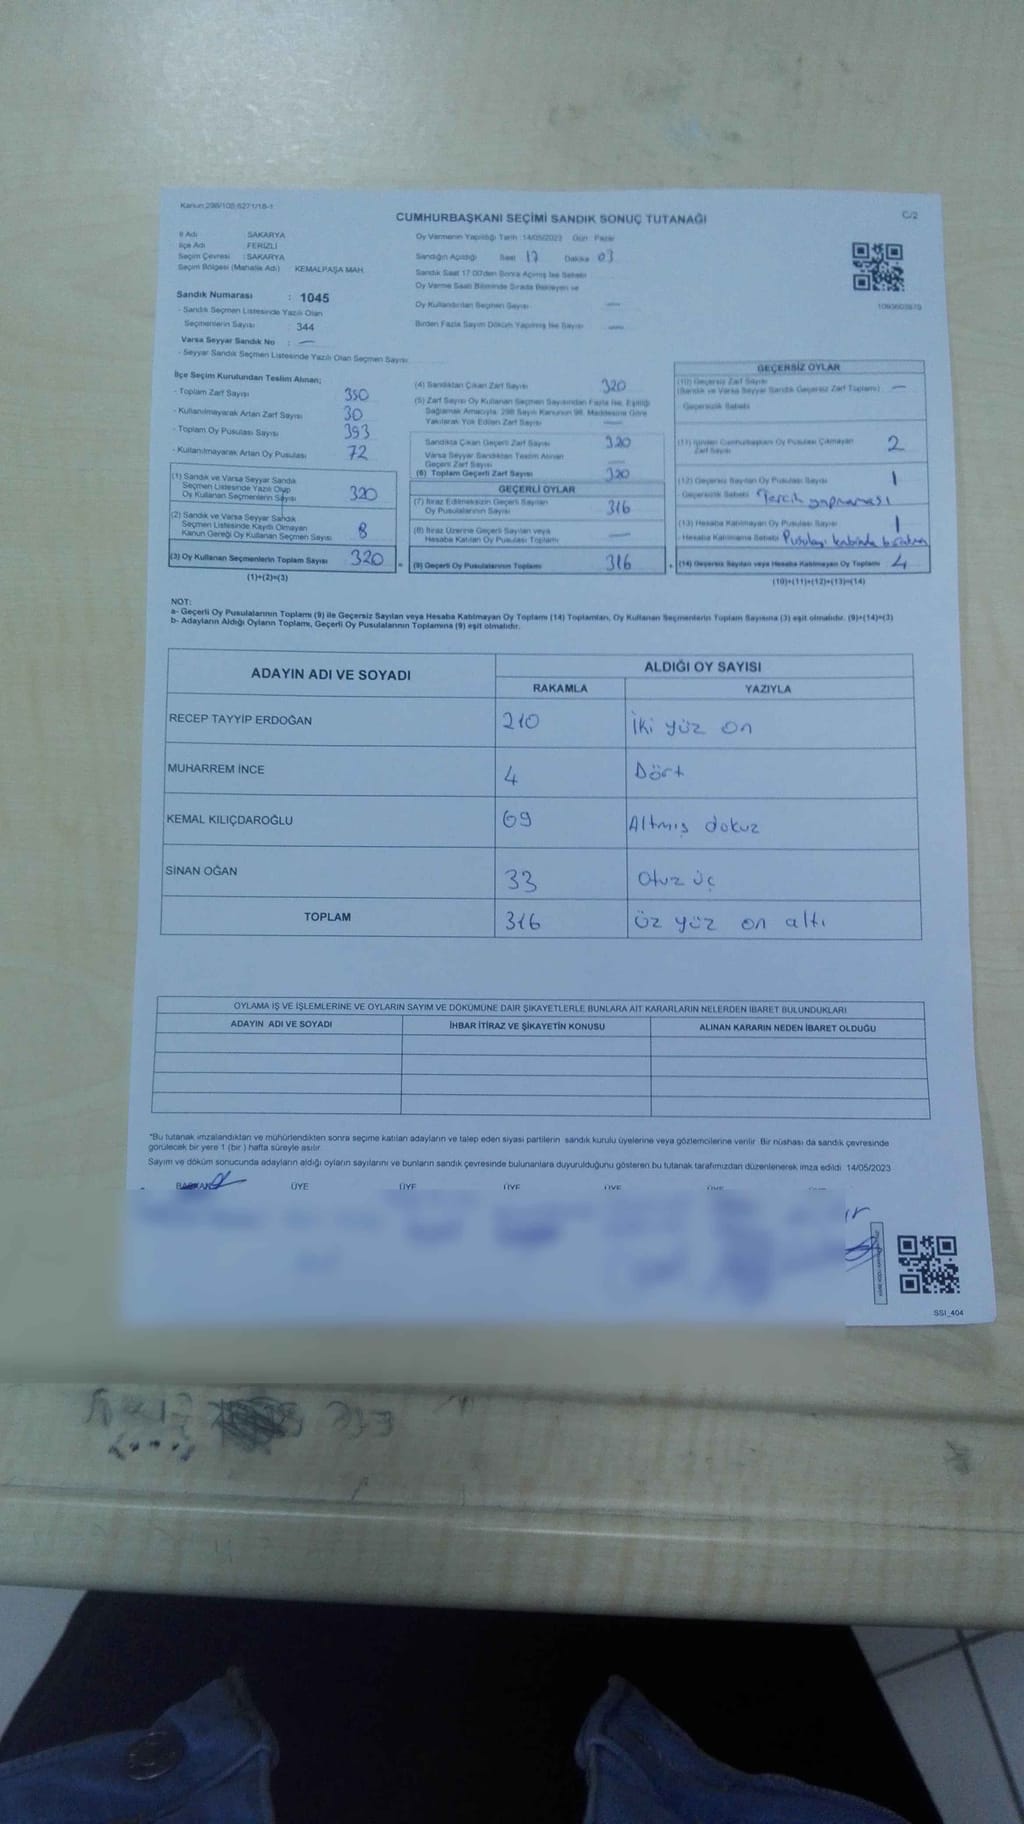 Kanun:298/105;6271/18-1
CUMHURBAŞKANI SEÇİMİ SANDIK SONUÇ TUTANAĞI
C/2
İl Adı SAKARYA
İlçe Adı FERİZLİ
Seçim Çevresi : SAKARYA
Seçim Bölgesi (Mahalle Adı) KEMALPAŞA MAH.
Sandık Numarası : 1045
- Sandık Seçmen Listesinde Yazılı Olan
Seçmenlerin Sayısı : 344
Varsa Seyyar Sandık No : —
- Seyyar Sandık Seçmen Listesinde Yazılı Olan Seçmen Sayısı
Oy Vermenin Yapıldığı Tarih :14/05/2023 Gün : Pazar
Sandığın Açıldığı Saat 17 Dakika 03
Sandık Saat 17:00'den Sonra Açılmış İse Sebebi
Oy Verme Saati Bitiminde Sırada Bekleyen ve
Oy Kullandırılan Seçmen Sayısı —
Birden Fazla Sayım Döküm Yapılmış İse Sayısı —
İlçe Seçim Kurulundan Teslim Alınan;
- Toplam Zarf Sayısı 350
- Kullanılmayarak Artan Zarf Sayısı 30
- Toplam Oy Pusulası Sayısı 393
- Kullanılmayarak Artan Oy Pusulası 72
(1) Sandık ve Varsa Seyyar Sandık
Seçmen Listesinde Yazılı Olup
Oy Kullanan Seçmenlerin Sayısı 320
(2) Sandık ve Varsa Seyyar Sandık
Seçmen Listesinde Kayıtlı Olmayan
Kanun Gereği Oy Kullanan Seçmen Sayısı
(3) Oy Kullanan Seçmenlerin Toplam Sayısı 320
(1)+(2)=(3)
(4) Sandıktan Çıkan Zarf Sayısı 320
(5) Zarf Sayısı Oy Kullanan Seçmen Sayısından Fazla İse, Eşitliği
Sağlamak Amacıyla; 298 Sayılı Kanunun 98. Maddesine Göre
Yakılarak Yok Edilen Zarf Sayısı —
Sandıkta Çıkan Geçerli Zarf Sayısı 320
Varsa Seyyar Sandıktan Teslim Alınan
Geçerli Zarf Sayısı —
(6) Toplam Geçerli Zarf Sayısı 320
GEÇERLİ OYLAR
(7) İtiraz Edilmeksizin Geçerli Sayılan
Oy Pusulalarının Sayısı 316
(8) İtiraz Üzerine Geçerli Sayılan veya
Hesaba Katılan Oy Pusulası Toplamı —
(9) Geçerli Oy Pusulalarının Toplamı 316
GEÇERSİZ OYLAR
(10) Geçersiz Zarf Sayısı
(Sandık ve Varsa Seyyar Sandık Geçersiz Zarf Toplamı) —
Geçersizlik Sebebi
(11) İçinden Cumhurbaşkanı Oy Pusulası Çıkmayan
Zarf Sayısı 2
(12) Geçersiz Sayılan Oy Pusulası Sayısı 1
Geçersizlik Sebebi Tercih yapmaması
(13) Hesaba Katılmayan Oy Pusulası Sayısı 1
- Hesaba Katılmama Sebebi Pusulayı kabinde
(14) Geçersiz Sayılan veya Hesaba Katılmayan Oy Toplamı 4
(10)+(11)+(12)+(13)=(14)
NOT:
a- Geçerli Oy Pusulalarının Toplamı (9) ile Geçersiz Sayılan veya Hesaba Katılmayan Oy Toplamı (14) Toplamları, Oy Kullanan Seçmenlerin Toplam Sayısına (3) eşit olmalıdır. (9)+(14)=(3)
b- Adayların Aldığı Oyların Toplamı, Geçerli Oy Pusulalarının Toplamına (9) eşit olmalıdır.
ADAYIN ADI VE SOYADI
ALDIĞI OY SAYISI
RAKAMLA YAZIYLA
RECEP TAYYİP ERDOĞAN 210 İki yüz on
MUHARREM İNCE 4 Dört
KEMAL KILIÇDAROĞLU 69 Altmış dokuz
SİNAN OĞAN 33 Otuz üç
TOPLAM 316 üz yüz on altı
OYLAMA İŞ VE İŞLEMLERİNE VE OYLARIN SAYIM VE DÖKÜMÜNE DAİR ŞİKAYETLERLE BUNLARA AİT KARARLARIN NELERDEN İBARET BULUNDUKLARI
ADAYIN ADI VE SOYADI İHBAR İTİRAZ VE ŞİKAYETİN KONUSU ALINAN KARARIN NEDEN İBARET OLDUĞU
*Bu tutanak imzalandıktan ve mühürlendikten sonra seçime katılan adayların ve talep eden siyasi partilerin sandık kurulu üyelerine veya gözlemcilerine verilir. Bir nüshası da sandık çevresinde
görülecek bir yere 1 (bir ) hafta süreyle asılır.
Sayım ve döküm sonucunda adayların aldığı oyların sayılarını ve bunların sandık çevresinde bulunanlara duyurulduğunu gösteren bu tutanak tarafımızdan düzenlenerek imza edildi. 14/05/2023
BAŞKAN ÜYE ÜYE ÜYE ÜYE ÜYE
SSI_404